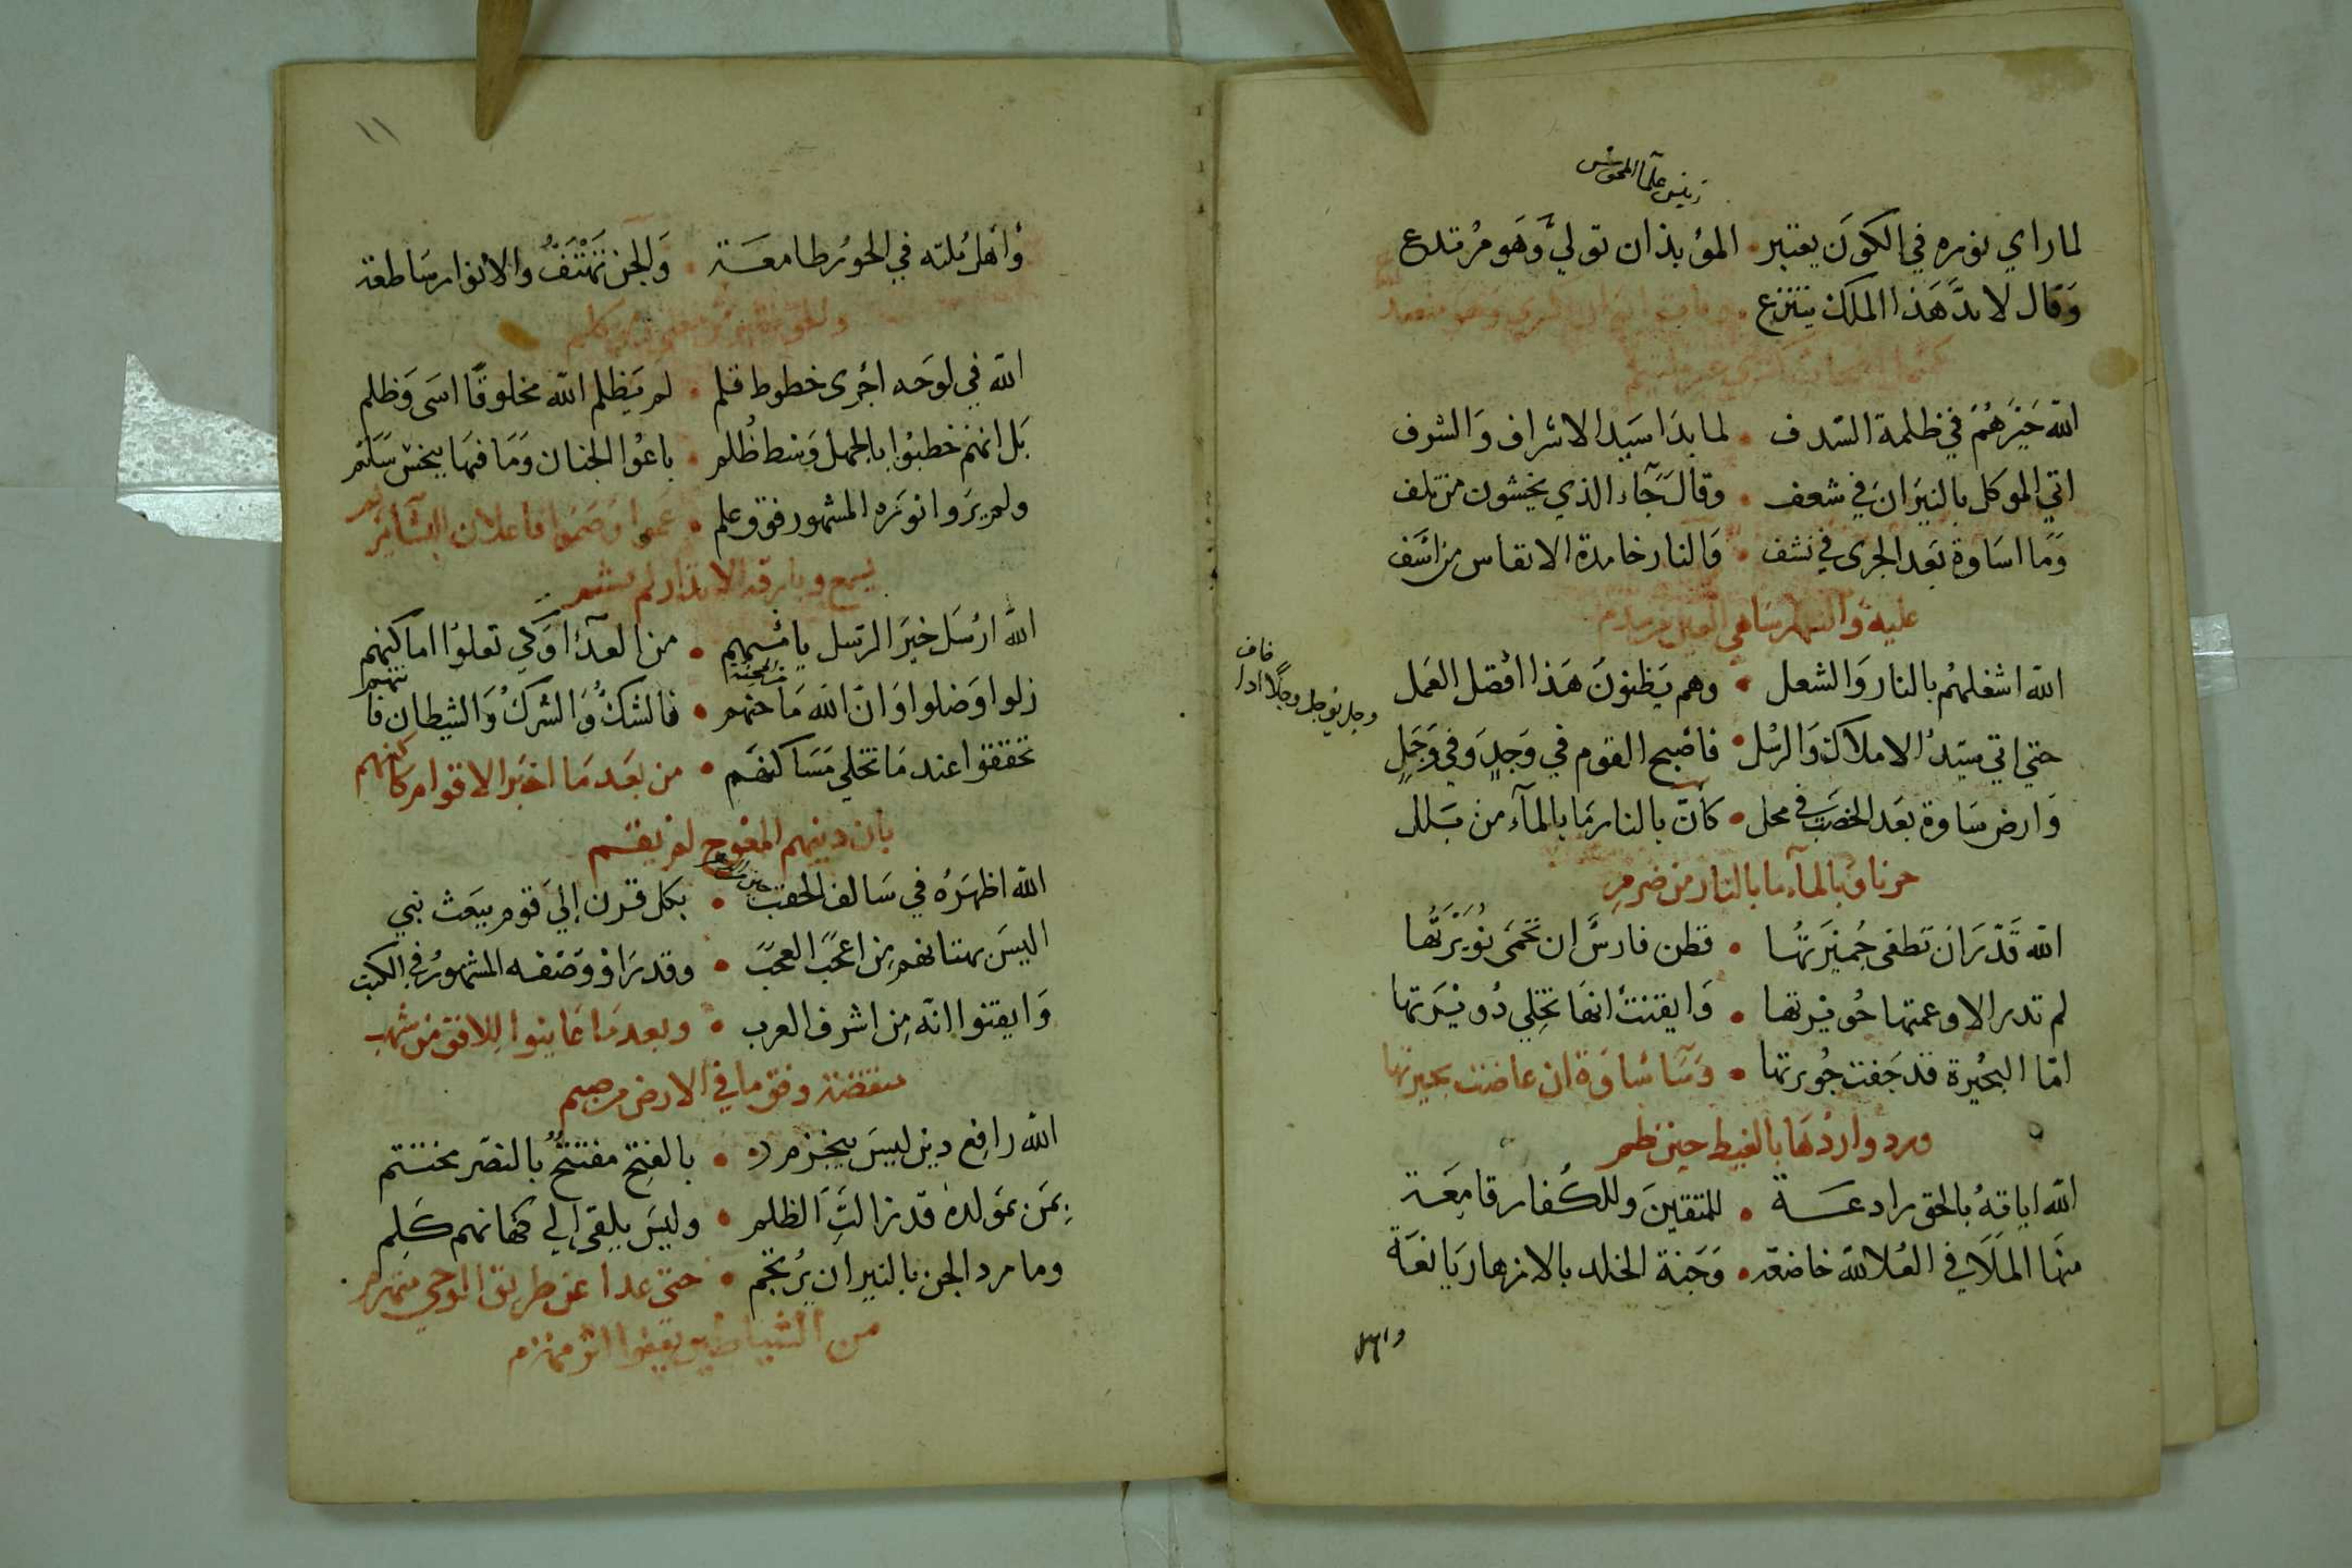 رئيس علمآ المجوس
لما راي نوره في الكون يعتبر • المؤبذان تولي وهو مرتدع
وقال لا بدَّ هذا الملك ينتزع • وبات ايوان كسرى وهو منصدع
كشمل اصحاب كسرى غير ملتئم
الله خيرهم في ظلمة السدف • لما بدا سيد الاشراف والشرف
اتي الموكل بالنيران في شعف • وقال جآء الذي يخشون من تلف
وما اساوة بعد الجرى في نشف • والنار خامدة الانفاس من اسف
عليه والنهر ساهي العين من سدم
الله اشغلهم بالنار والشعل • وهم يظنون هذا افضل العمل
حتي اتي سيد الاملاك والرسل • فاصبح القوم في وجد وفي وجل
وارض ساوة بعد الخصب في محل • كان بالنار ما بالمآء من بلل
حزنا وبالمآء ما بالنار من ضرم
الله قدر ان تطفى جميرتها • فظن فارس ان تحمى نويرتها
لم تدر الا وعمتها حويرتها • وايقنت انها تخلي دويرتها
امّا البحيرة قد جفت جويرتها • وسآ ساوة ان غاضت بحيرتها
ورد واردها بالغيظ حين ظم
الله اياته بالحق رادعة • للمتقين وللكفار قامعة
منها الملا في العلا لله خاضعة • وجنة الخلد بالازهار يانعة
واهل
وجل يوجل وجلا اذا خاف
١١
واهل ملته في الحور طامعة • والجن تهتف والانوار ساطعة
والحق يظهر من معنى ومن كلم
الله في لوحه اجرى خطوط قلم • لم يظلم الله مخلوقًا اسى وظلم
بل انهم خطبوا بالجهل وسط ظلم • باعوا الجنان وما فيها ببخس سلم
ولم يروا نوره المشهور فوق علم • عموا وصموا فاعلان البشآئر لم
يسمع وبارقة الانذار لم تشم
الله ارسل خير الرسل يامنهم • من العدآ وكي تعلوا اماكنهم
زلوا وضلوا وان الله ماحنهم • فالشك والشرك والشيطان فاتنهم
تحققوا عند ما تخلي مساكنهم • من بعد ما اخبر الاقوام كاهنهم
بان دينهم المعوج لم يقم
الله اظهره في سالف الحقب • بكل قرن إلي قوم يبعث نبي
اليس بهتانهم من اعجب العجب • وقد راو وصفه المشهور في الكتب
وايقنوا انه من اشرف العرب • وبعد ما عاينوا للافق من شهب
منقضة وفق ما في الارض من صنم
الله رافع دين ليس ينخزم • بالفتح مفتتح بالنصر مختتم
بمن بمولده قد زالت الظلم • وليس يلقى إلي كهانهم كلم
وما رد الجن بالنيران يرتجم • حتى غدا عن طريق الوحي منهزم
من الشياطين يقفوا اثر منهزم